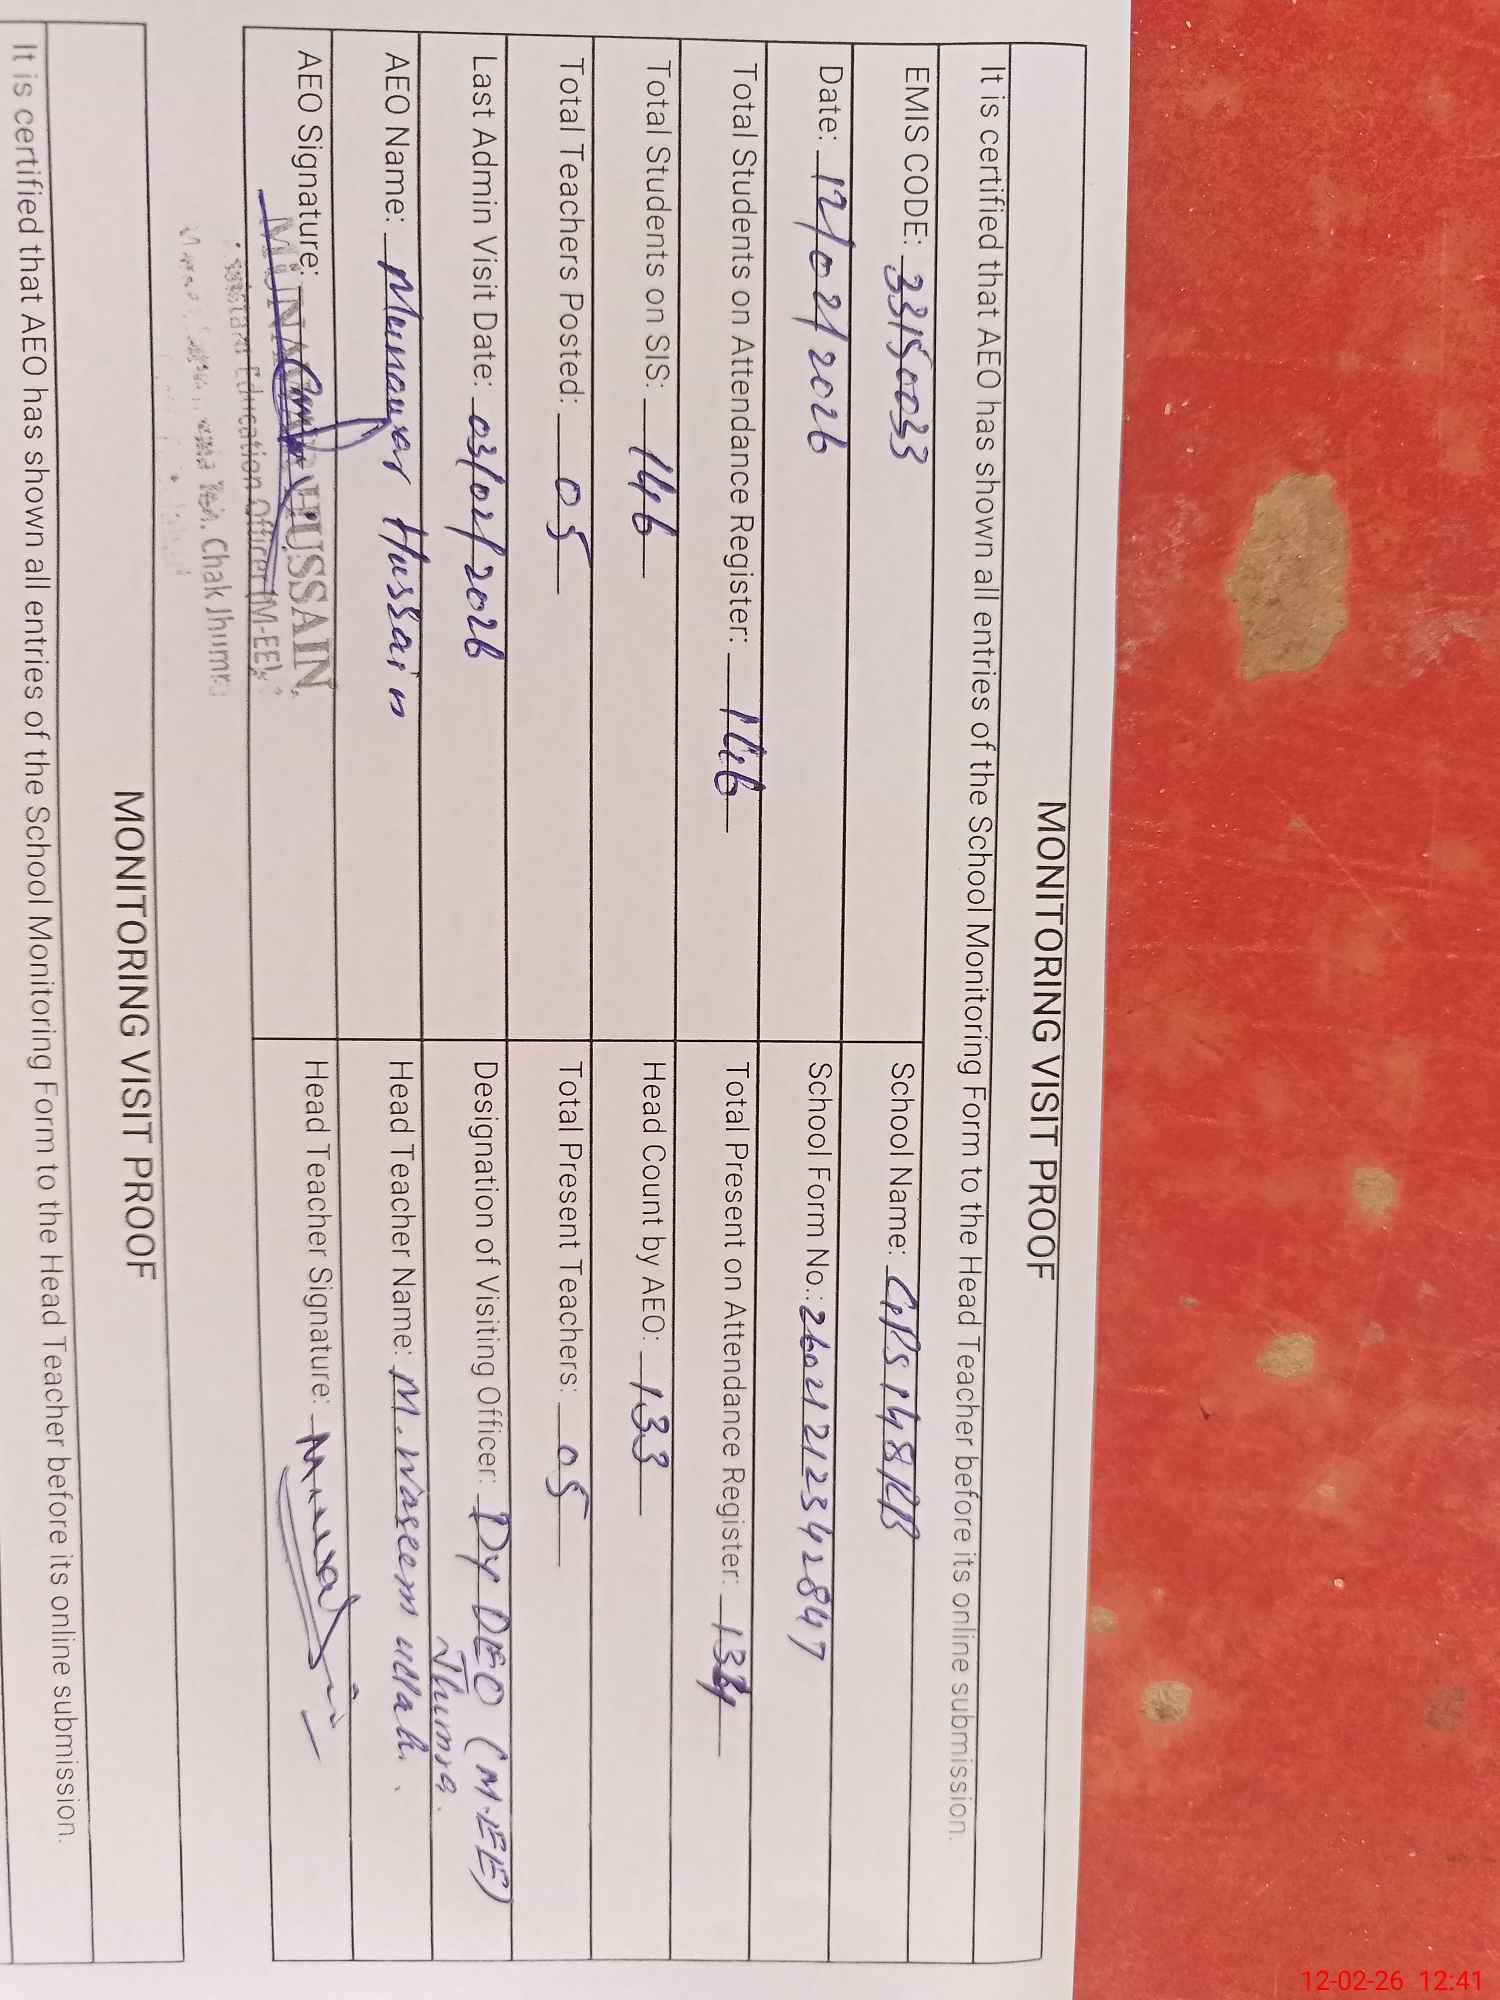 MONITORING VISIT PROOF
It is certified that AEO has shown all entries of the School Monitoring Form to the Head Teacher before its online submission.
EMIS CODE: 33150033 School Name: GPS 148 RB
Date: 12/02/2026 School Form No.: 26021212342847
Total Students on Attendance Register: 146 Total Present on Attendance Register: 134
Total Students on SIS: 146 Head Count by AEO: 133
Total Teachers Posted: 05 Total Present Teachers: 05
Last Admin Visit Date: 03/02/2026 Designation of Visiting Officer: Dy DEO (M-EE) Jhumra.
AEO Name: Munawar Hussain Head Teacher Name: M. Waseem ullah.
AEO Signature: Head Teacher Signature:
HUSSAIN
Education Officer (M-EE)
Chak Jhumra
MONITORING VISIT PROOF
It is certified that AEO has shown all entries of the School Monitoring Form to the Head Teacher before its online submission.
12-02-26 12:41